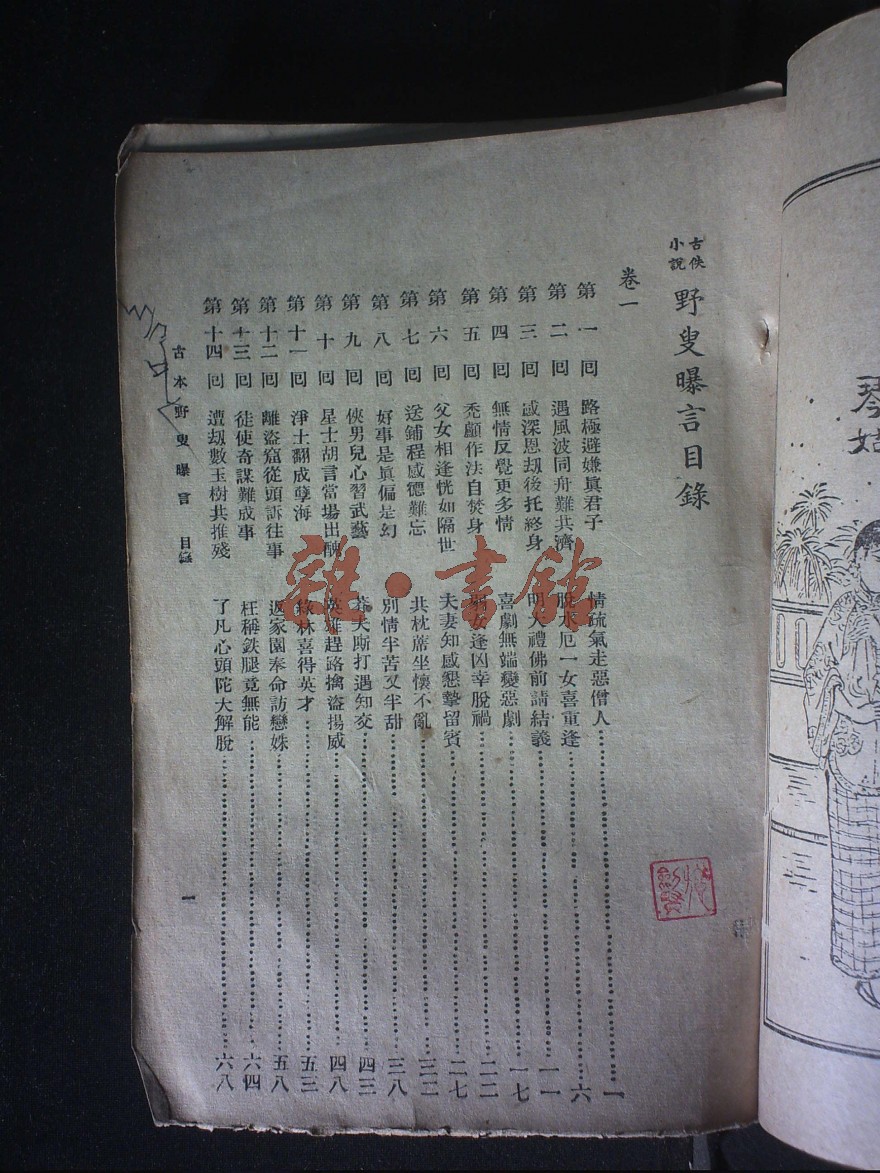 古佚小說 野叟曝言目錄
卷一
第一回 路極避嫌眞君子 情疏氣走惡僧人 一
第二回 遇風波同舟難共濟 脫水厄一女喜重逢 六
第三回 感深恩刼後托終身 明大禮佛前請結義 一一
第四回 無情反覺更多情 喜劇無端變惡劇 一七
第五回 禿顱作法自焚身 女逢凶幸脫禍 二二
第六回 父女相逢恍如隔世 夫妻知感懇摯留賓 二七
第七回 送鋪程感德難忘 共枕蓆坐懷不亂 三二
第八回 好事是眞偏是幻 別情半苦又半甜 三八
第九回 俠男兒心習武藝 莽夫斯打遇知交 四三
第十回 星士胡言當場出醜 英雄趕路擒盜揚威 四八
第十一回 淨土翻成孽海 綠林喜得英才 五三
第十二回 離盜窟從頭訴往事 返家園奉命訪戀姝 五八
第十三回 徒使奇謀難成事 枉稱鉄腿竟無能 六四
第十四回 遭刼數玉樹共推殘 了凡心頭陀大解脫 六八
古本野叟曝言 目錄
一
琴姑
雜·書館